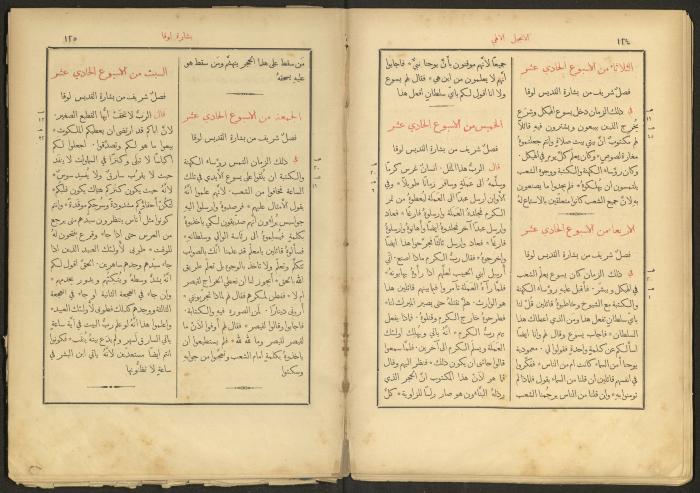 ١٢٤
الانجيل الالهي
الثلاثاء من الاسبوع الحادي عشر
فصل شريف من بشارة القديس لوقا
في ذلك الزمان دخل يسوع الهيكل وشرع
يخرج الذين يبيعون ويشترون فيه قائلًا
لهم مكتوبٌ انّ بيتي بيت صلاة وانتم جعلتموهُ
مغارة لصوصٍ* وكان يعلّم كلّ يومٍ في الهيكل*
وكان رؤساء الكهنة والكتبة ووجوه الشعب
يلتمسون ان يهلكوهُ* فلم يجدوا ما يصنعون
بهِ لأنّ جميع الشعب كانوا متعلّقين بالاستماع لهُ
الاربعا من الاسبوع الحادي عشر
فصل شريف من بشارة القديس لوقا
في ذلك الزمان كان يسوع يعلّم الشعب
في الهيكل ويبشّر* فأقبل عليهِ رؤساء الكهنة
والكتبة مع الشيوخ وخاطبوهُ قائلين قُل لنا
بأيّ سلطانٍ تفعل هذا ومن الذي اعطاك هذا
السلطان* فاجاب يسوع وقال لهم وانا ايضًا
اسألكم عن كلمةٍ واحدةٍ فقولوا لي* معموديّة
يوحنا أمن السماء كانت ام من الناس* ففكّروا
في انفسهم قائلين ان قلنا من السماء يقول فلماذا لم
تؤمنوا بهِ* وان قلنا من الناس يرجمنا الشعب
جميعًا لأنهم موقنون بأنّ يوحنا نبيٌّ* فاجابوا
أنهم لا يعلمون من اين هي* فقال لهم يسوع
ولا انا اقول لكم بأيّ سلطانٍ أفعل هذا
الخميس من الاسبوع الحادي عشر
فصل شريف من بشارة القديس لوقا
قال الربّ هذا المثل. انسانٌ غرس كرمًا
وسلّمهُ الى عملةٍ وسافر زمانًا طويلًا* وفي
الأوان ارسل عبدًا الى العملة ليعطوهُ من ثمر
الكرم فجلدهُ العملة وارسلوهُ فارغًا* فعاد
وارسل عبدًا آخر فجلدوهُ ايضًا وأهانوهُ وارسلوهُ
فارغًا* فعاد وارسل ثالثًا فجرّحوا هذا ايضًا
واخرجوهُ* فقال ربّ الكرم ماذا اصنع* اني
أرسل ابني الحبيب لعلّهم اذا رأوهُ يهابونهُ*
فلمّا رآهُ العملة تآمروا فيما بينهم قائلين هذا
هو الوارث. هلمّ نقتلهُ حتى يصير الميراث لنا*
فطرحوهُ خارج الكرم وقتلوهُ* فماذا يفعل
بهم ربّ الكرم* انّهُ يأتي ويهلك اولئك
العملة ويسلّم الكرم الى آخرين. فلمّا سمعوا
قالوا حاشى ان يكون ذلك* فنظر اليهم وقال
فما هو اذَنْ هذا المكتوب انّ الحجر الذي
رذلهُ البنّاءون هو صار رأسًا للزاوية* كلّ
بشارة لوقا
١٢٥
مَن سقط على هذا الحجر يتهشّم ومَن سقط هو
عليهِ يسحقهُ
الجمعة من الاسبوع الحادي عشر
فصل شريف من بشارة القديس لوقا
في ذلك الزمان التمس رؤساء الكهنة
والكتبة ان يلقوا على يسوع الأيدي في تلك
الساعة فخافوا من الشعب. لأنهم علموا أنهُ
يقول الامثال عليهم* فرصدوهُ وارسلوا اليهِ
جواسيس يراءون أنهم صدّيقون لكي يأخذوهُ
بكلمةٍ فيسلموهُ الى رئاسة الوالي وسلطانهِ*
فسألوهُ قائلين يا معلّم قد علمنا أنك بالصواب
تتكلّم وتعلّم ولا تأخذ بالوجوه بل تعلّم طريق
الله بالحقّ* أيجوز لنا ان نعطي الخراج لقيصر
ام لا* ففطن لمكرهم فقال لهم لماذا تجرّبونني*
أروني دينارًا* لمن الصورة فيهِ والكتابة*
فاجابوا وقالوا لقيصر* فقال لهم أوفوا إذَنْ ما
لقيصر لقيصر وما لله لله* فلم يستطيعوا ان
يأخذوهُ بكلمةٍ امام الشعب وتعجّبوا من جوابهِ
وسكتوا
السبت من الاسبوع الحادي عشر
فصل شريف من بشارة القديس لوقا
قال الربّ لا تخَفْ ايّها القطيع الصغير.
لأنّ اباكم قد ارتضى ان يعطيكم الملكوت*
بيعوا ما هو لكم وتصدّقوا* اجعلوا لكم
اكياسًا لا تبلى وكنزًا في السماوات لا ينفد
حيث لا يقرب سارقٌ ولا يُفسد سوسٌ*
لأنّهُ حيث يكون كنزكم هناك يكون قلبكم*
لتكن أحقاؤكم مشدودة وسرُجكم موقدة* وانتم
كونوا مثل أناسٍ ينتظرون سيدهم متى يرجع
من العرس حتى اذا جاء وقرع يفتحون لهُ
للوقت* طوبى لأولئك العبيد الذين اذا
جاء سيدهم وجدهم ساهرين. الحقّ اقول لكم
انّهُ يشدّ وسطهُ ويُتكئهم ويدور يخدمهم*
وإن جاء في الهجعة الثانية او جاء في الهجعة
الثالثة ووجدهم كذلك فطوبى لأولئك العبيد*
واعلموا هذا انّهُ لو علم ربّ البيت في أيّة ساعةٍ
يأتي السارق لسهر ولم يدَع بيتهُ يُنقَب* فكونوا
انتم ايضًا مستعدّين لأنّهُ يأتي ابن البشر في
ساعةٍ لا تظنّونها